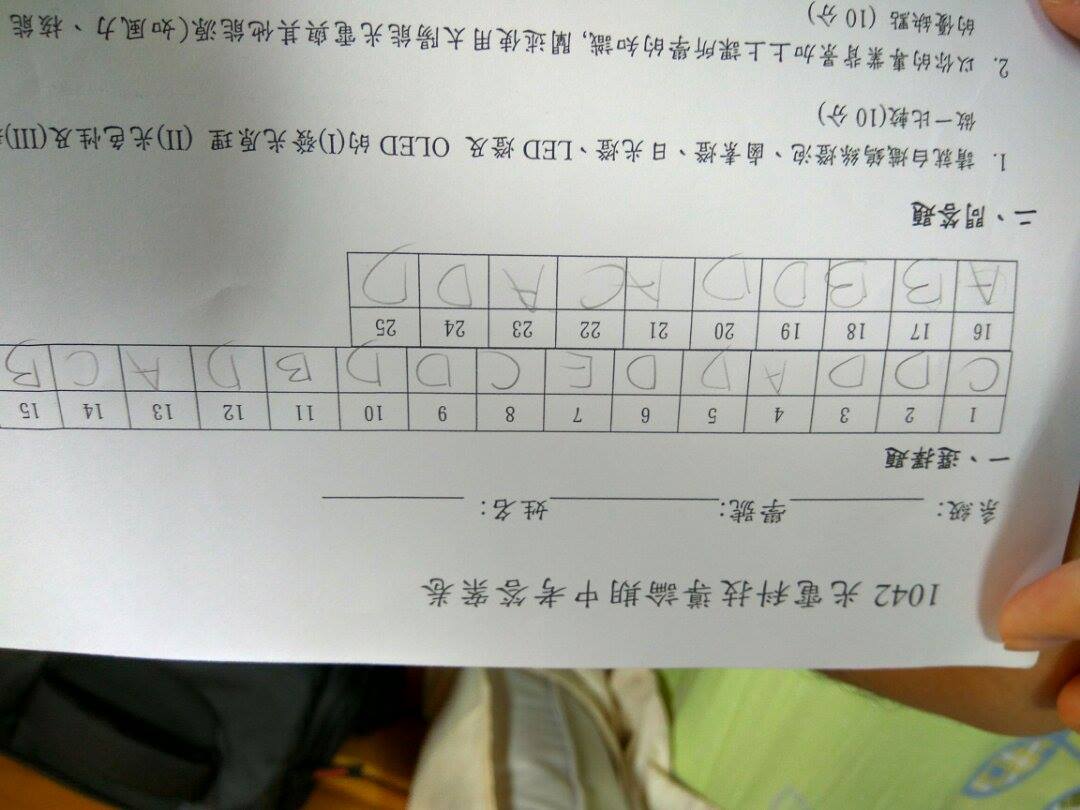 1042 光電科技導論期中考答案卷
系級：__________學號：____________姓名：__________
一、選擇題
1 2 3 4 5 6 7 8 9 10 11 12 13 14 15
C D D A D D E C D D B D A C B
16 17 18 19 20 21 22 23 24 25
A B B D D A C A D D
二、問答題
1. 請就白熾鎢絲燈泡、鹵素燈、日光燈、LED 燈及 OLED 的(I)發光原理 (II)光色性及(III)
做一比較(10 分)
2. 以你的專業背景加上上課所學的知識, 闡述使用太陽能光電與其他能源(如風力、核能
的優缺點 (10 分)